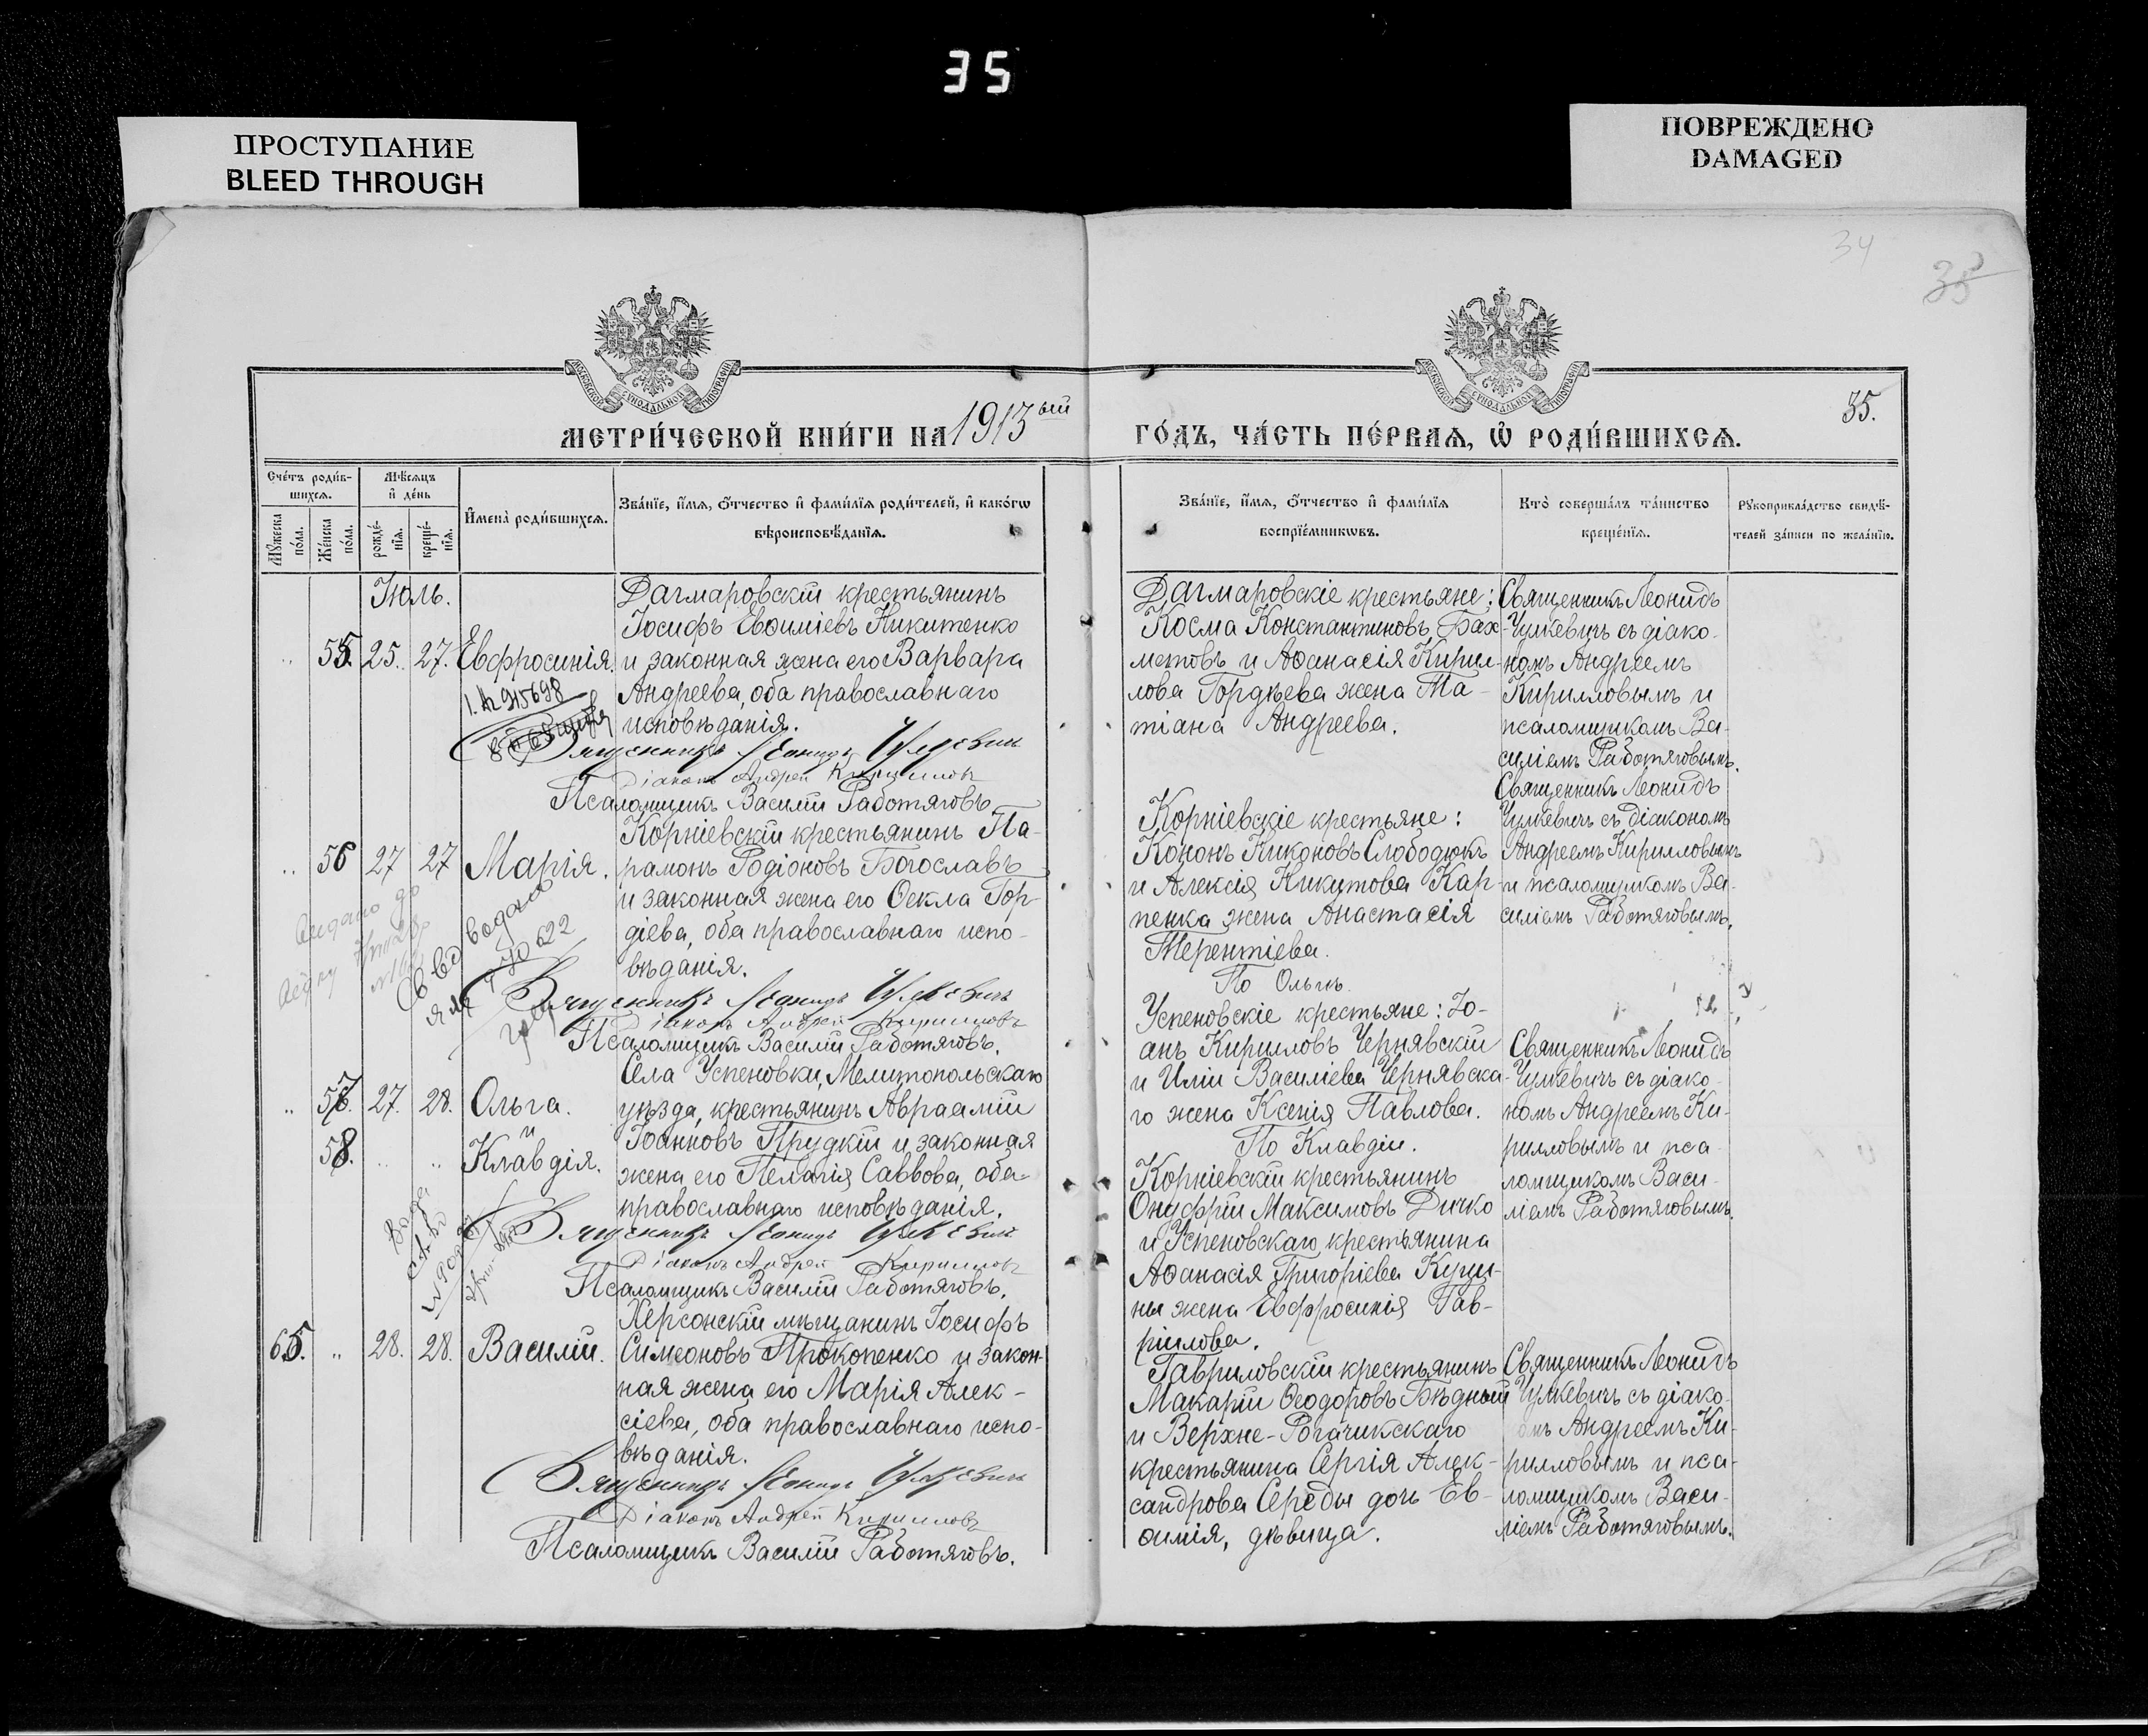 35
ПРОСТУПАНИЕ
BLEED THROUGH
ПОВРЕЖДЕНО
DAMAGED
34
35
МЕТРИ́ЧЕСКОЙ КНИ́ГИ НА 1913ый
ГО́ДЪ, ЧА́СТЬ ПЕ́РВАѦ, Ѡ҆ РОДИ́ВШИХСѦ.
35.
Сче́тъ роди́в-
шихсѧ.
Мꙋ́жеска
по́ла.
Же́нска
по́ла.
Мѣ́сѧцъ
и҆ де́нь
рожде́-
нїѧ.
креще́-
нїѧ.
И҆мена̀ роди́вшихсѧ.
Зва́нїе, и҆́мѧ, ѻ҆́тчество и҆ фами́лїѧ роди́телей, и҆ како́гѡ
вѣроисповѣ́данїѧ.
Зва́нїе, и҆́мѧ, ѻ҆́тчество и҆ фами́лїѧ
воспрїе́мникѡвъ.
Кто̀ соверша́лъ та́инство
креще́нїѧ.
Рꙋкоприкла́дство свидѣ́-
телей за́писи по жела́нїю.
Іюль.
55. 25. 27. Евфросинія.
Дагмаровскій крестьянинъ
Іосифъ Евѳиміевъ Никитенко
и законная жена его Варвара
Андреева, оба православнаго
исповѣданія.
Священникъ Леонидъ Чулкевичъ
Діаконъ Андрей Кирилловъ
Псаломщикъ Василій Работяговъ
Дагмаровскіе крестьяне:
Косма Константиновъ Бах-
метовъ и Аѳанасія Кирил-
лова Гордѣева жена Та-
тіана Андреева.
Священникъ Леонидъ
Чулкевичъ съ діако-
номъ Андреемъ
Кирилловымъ и
псаломщикомъ Ва-
силіемъ Работяговымъ.
56 27 27 Марія.
Корніевскій крестьянинъ Па-
рамонъ Родіоновъ Богославъ
и законная жена его Ѳекла Гор-
діева, оба православнаго испо-
вѣданія.
Священникъ Леонидъ Чулкевичъ
Діаконъ Андрей Кирилловъ
Псаломщикъ Василій Работяговъ.
Корніевскіе крестьяне:
Кононъ Никоновъ Слободюкъ
и Алексія Никитова Кар-
пенка жена Анастасія
Терентіева.
Священникъ Леонидъ
Чулкевичъ съ діакономъ
Андреемъ Кирилловымъ
и псаломщикомъ Ва-
силіемъ Работяговымъ.
57. 27. 28. Ольга.
и
58. Клавдія.
Села Успеновки, Мелитопольскаго
уѣзда, крестьянинъ Авраамій
Іоанновъ Прудкій и законная
жена его Пелагія Саввова, оба
православнаго исповѣданія.
Священникъ Леонидъ Чулкевичъ
Діаконъ Андрей Кирилловъ
Псаломщикъ Василій Работяговъ.
По Ольгѣ.
Успеновскіе крестьяне: Іо-
анъ Кирилловъ Чернявскій
и Иліи Василіева Чернявска-
го жена Ксенія Павлова.
По Клавдіи.
Корніевскій крестьянинъ
Онуфрій Максимовъ Дичко
и Успеновскаго крестьянина
Аѳанасія Григоріева Кущи-
ны жена Евфросинія Гав-
ріилова.
Священникъ Леонидъ
Чулкевичъ съ діако-
номъ Андреемъ Ки-
рилловымъ и пса-
ломщикомъ Васи-
ліемъ Работяговымъ.
65. 28. 28. Василій.
Херсонскій мѣщанинъ Іосифъ
Симеоновъ Прокопенко и закон-
ная жена его Марія Алек-
сіева, оба православнаго испо-
вѣданія.
Священникъ Леонидъ Чулкевичъ
Діаконъ Андрей Кирилловъ
Псаломщикъ Василій Работяговъ.
Гавриловскій крестьянинъ
Макарій Ѳеодоровъ Бѣдный
и Верхне-Рогачикскаго
крестьянина Сергія Алек-
сандрова Середы дочь Ев-
ѳимія, дѣвица.
Священникъ Леонидъ
Чулкевичъ съ діако-
омъ Андреемъ Ки-
рилловымъ и пса-
ломщикомъ Васи-
ліемъ Работяговымъ.